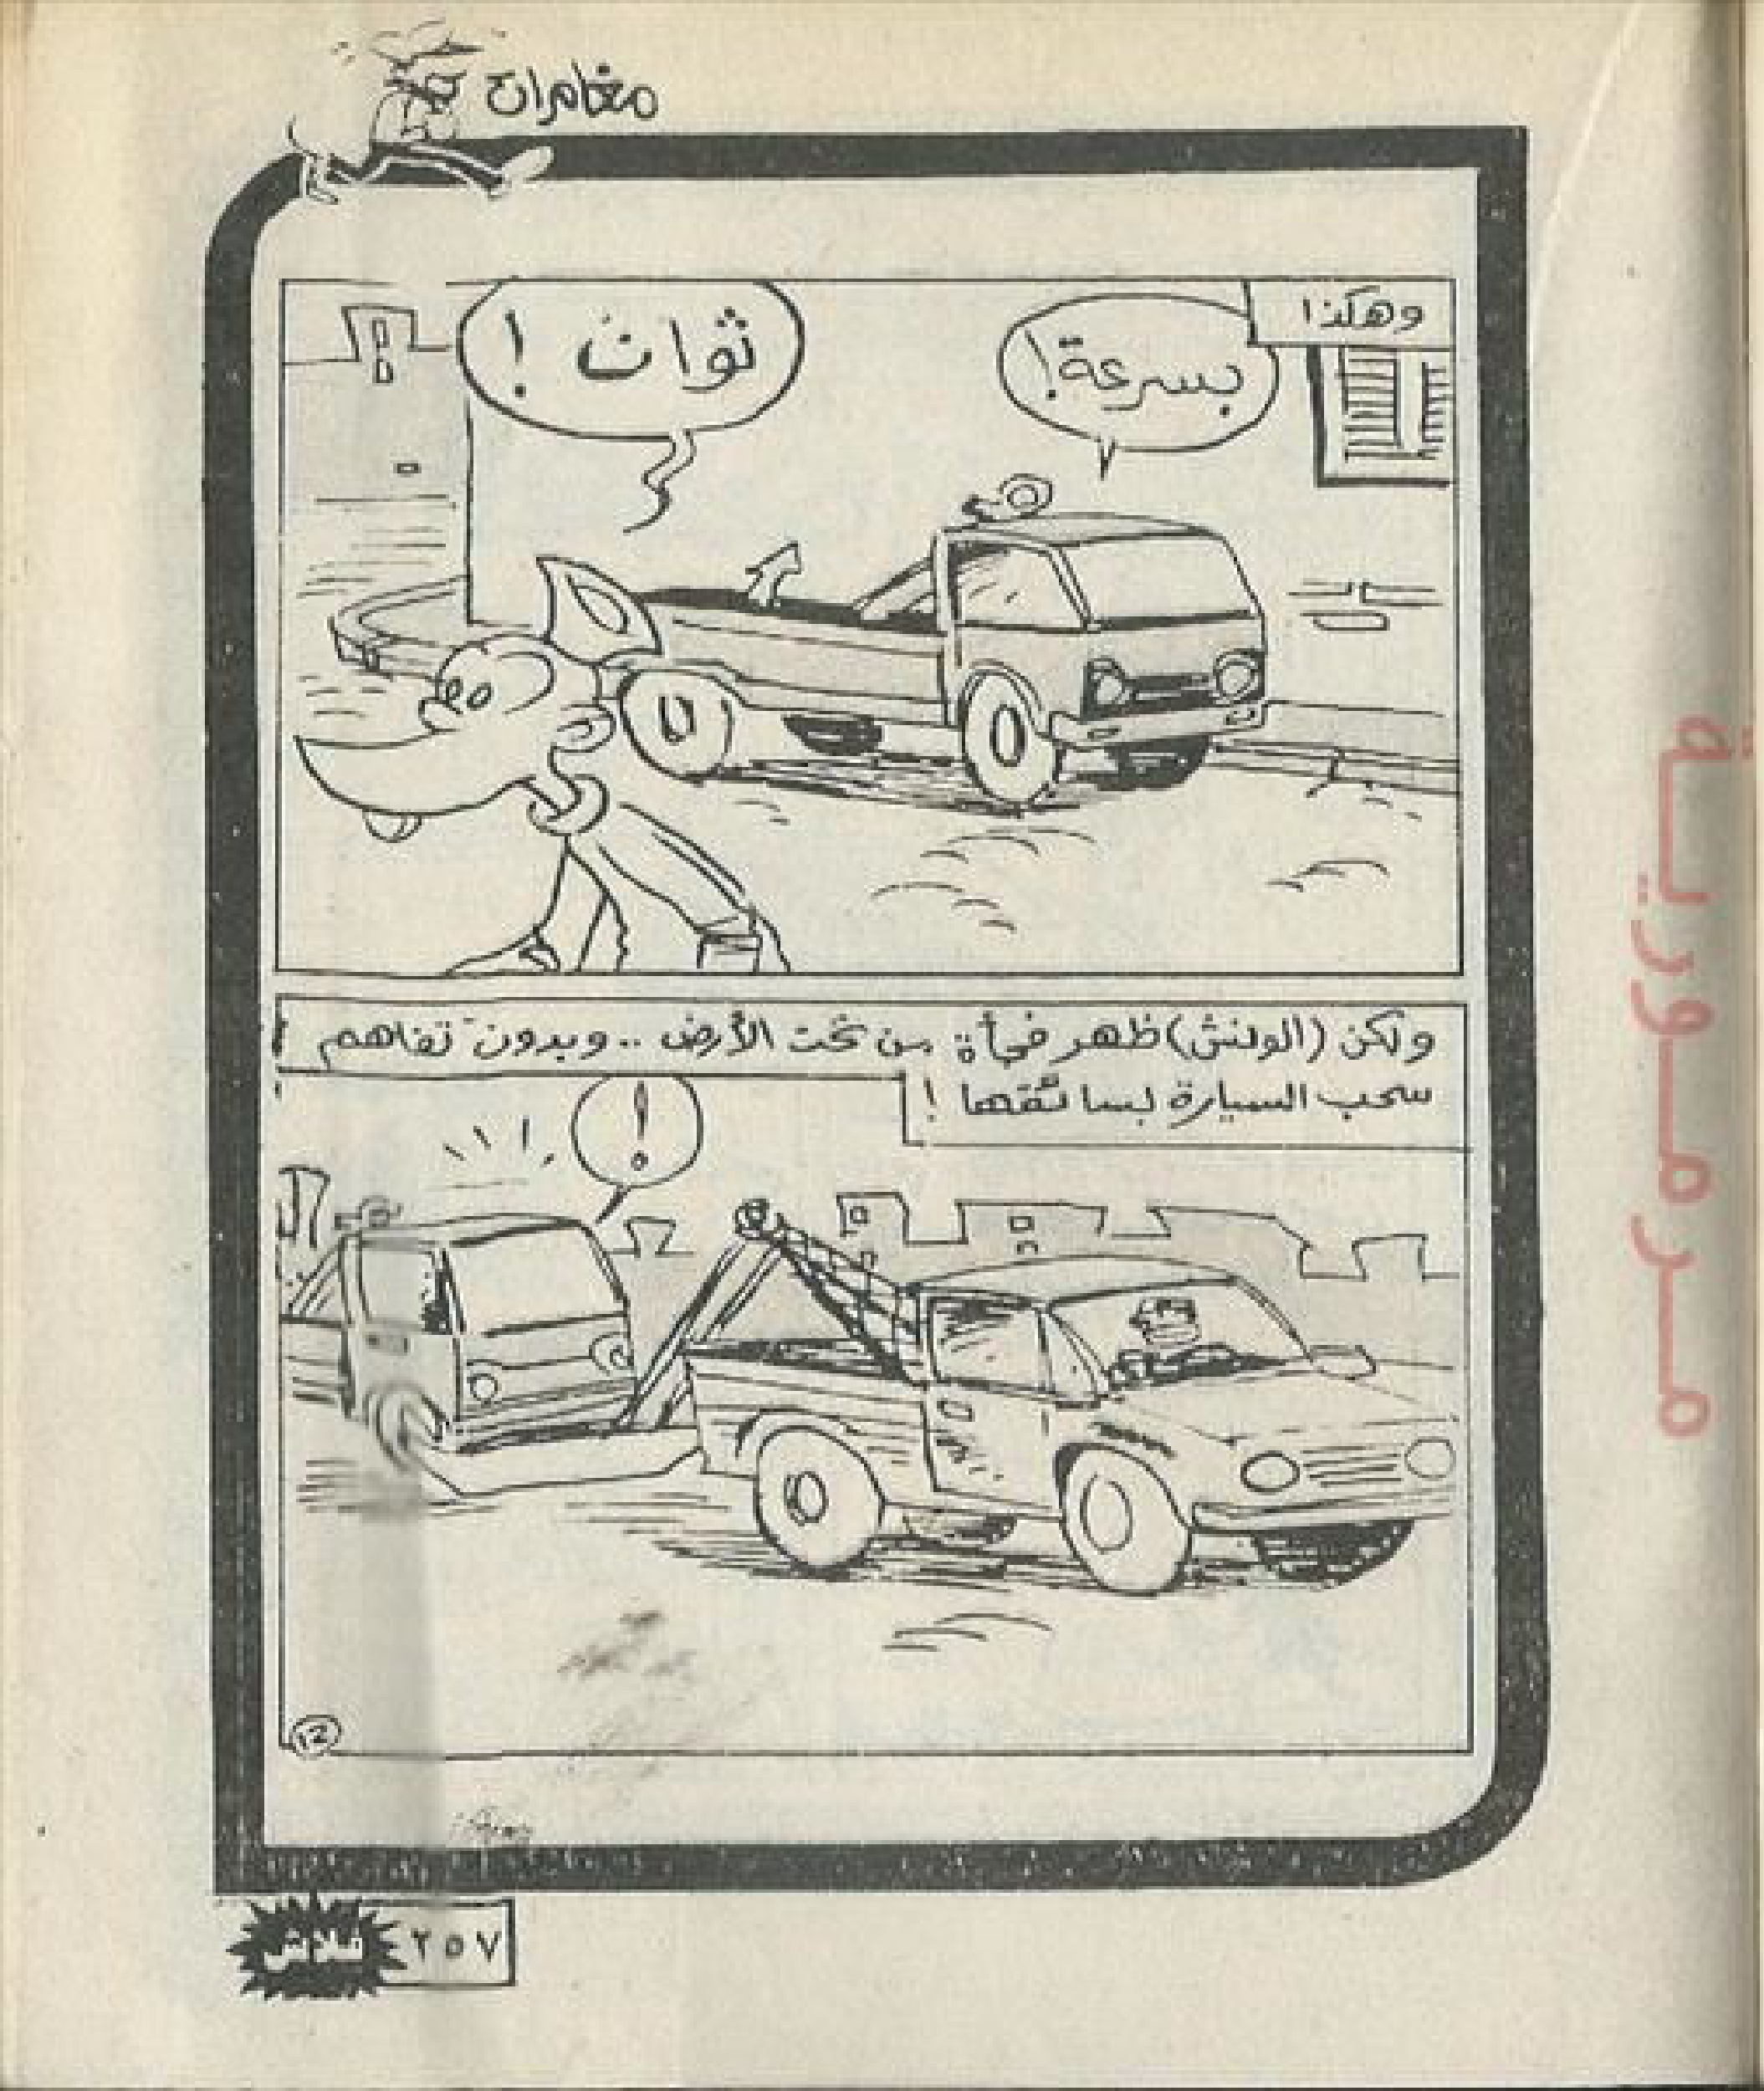 مغامرات
وهكذا
بسرعة!
ثوان !
ولكن (الونش) ظهر فجأة من تحت الأرض .. وبدون تفاهم
سحب السيارة بسائقها !
!
١٢
فلاش
٢٥٧
مرمورية